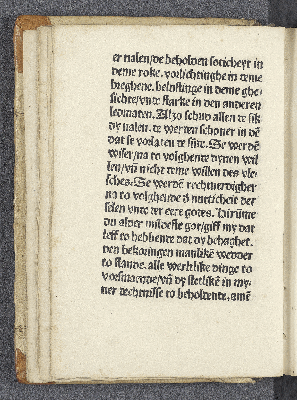 er valen/de beholden soticheyt in
deme roke. vorlichtinghe in deme
breghene. belustinge in deme ghe-
sichte/vnde starke in den anderen
ledmaten. Alzo schud allen de sik
dy nalen. te werten schoner in dē
dat se vorlaten de sūde. Se werdē
wiser/na to volghende dynen wil
len/vn̄ nicht deme willen des vle-
sches. Se werdē rechtuerdigher
na to volghende d nutticheit der
selen vnde der ere godes. Hirūme
du alder mildeste got/giff my dat
leff to hebbende dat dy behaghet.
den bekoringen manlikē wedder
to stande. alle werltlike dinge to
vorsmaende/vn̄ dy stetlikē in my-
ner dechtnisse to beholdende. amē